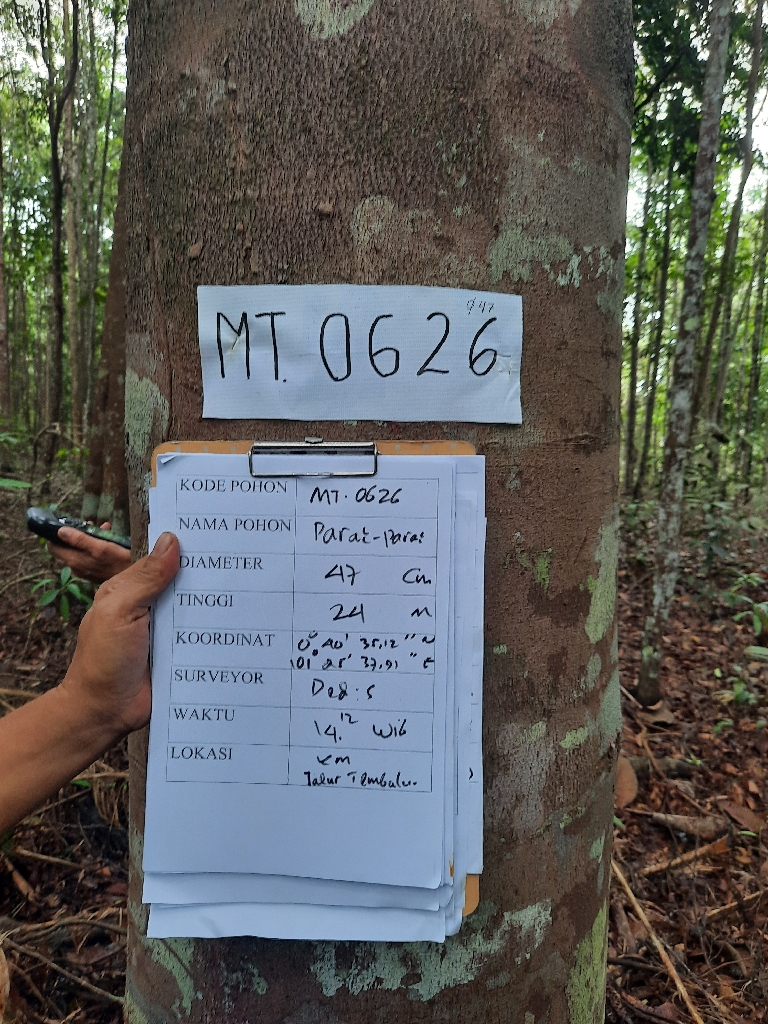 ∅ 47
MT. 0626
KODE POHON MT. 0626
NAMA POHON Parat-parat
DIAMETER 47 Cm
TINGGI 24 M
KOORDINAT 0° 40' 35,12" N
101° 25' 37,91" E
SURVEYOR
WAKTU 14.12 Wib
LOKASI km
Jalur Tembalu.